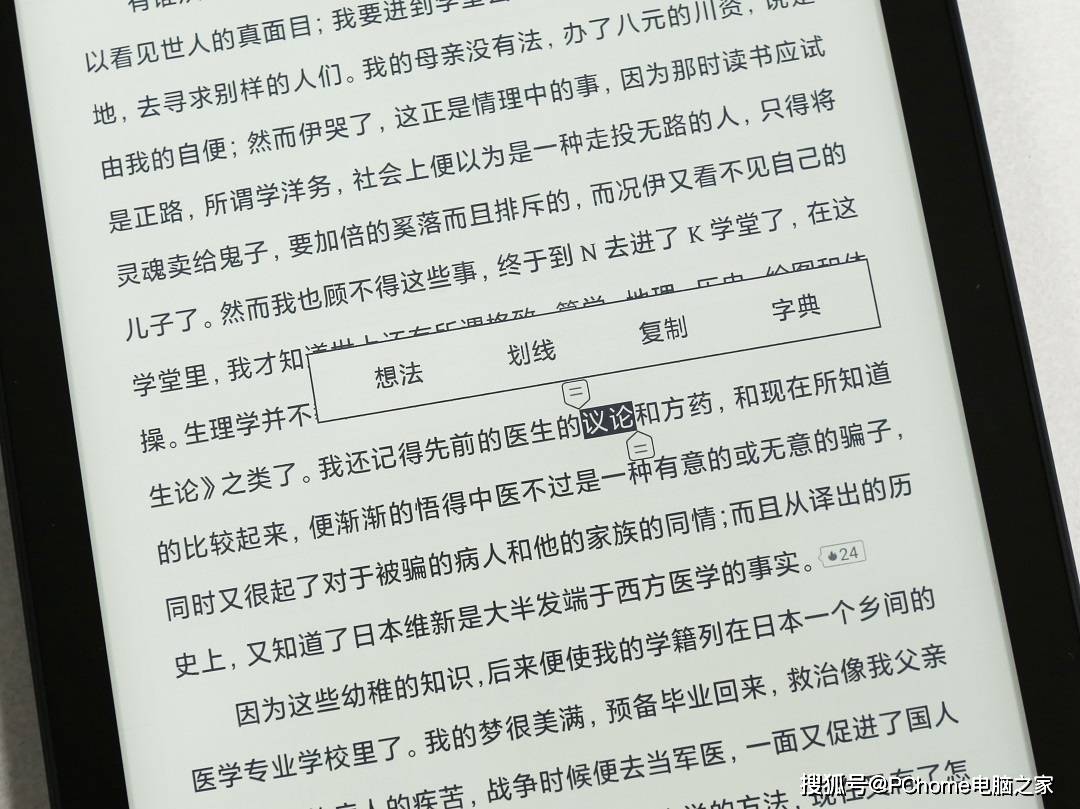 以看见世人的真面目；我要进到学堂去
地，去寻求别样的人们。我的母亲没有法，办了八元的川资，说是
由我的自便；然而伊哭了，这正是情理中的事，因为那时读书应试
是正路，所谓学洋务，社会上便以为是一种走投无路的人，只得将
灵魂卖给鬼子，要加倍的奚落而且排斥的，而况伊又看不见自己的
儿子了。然而我也顾不得这些事，终于到 N 去进了 K 学堂了，在这
学堂里，我才知道世上还有所谓格致，算学，地理，历史，绘图和体
想法 划线 复制 字典
操。生理学并不
生论》之类了。我还记得先前的医生的议论和方药，和现在所知道
的比较起来，便渐渐的悟得中医不过是一种有意的或无意的骗子，
同时又很起了对于被骗的病人和他的家族的同情；而且从译出的历
史上，又知道了日本维新是大半发端于西方医学的事实。
24
因为这些幼稚的知识，后来便使我的学籍列在日本一个乡间的
医学专业学校里了。我的梦很美满，预备毕业回来，救治像我父亲
病人的疾苦，战争时候便去当军医，一面又促进了国人
学的方法，现在又有了怎
搜狐号@PChome电脑之家